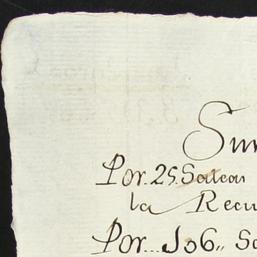 Sum
Por 25 Salean
la Recu
Por... 106,, Sa